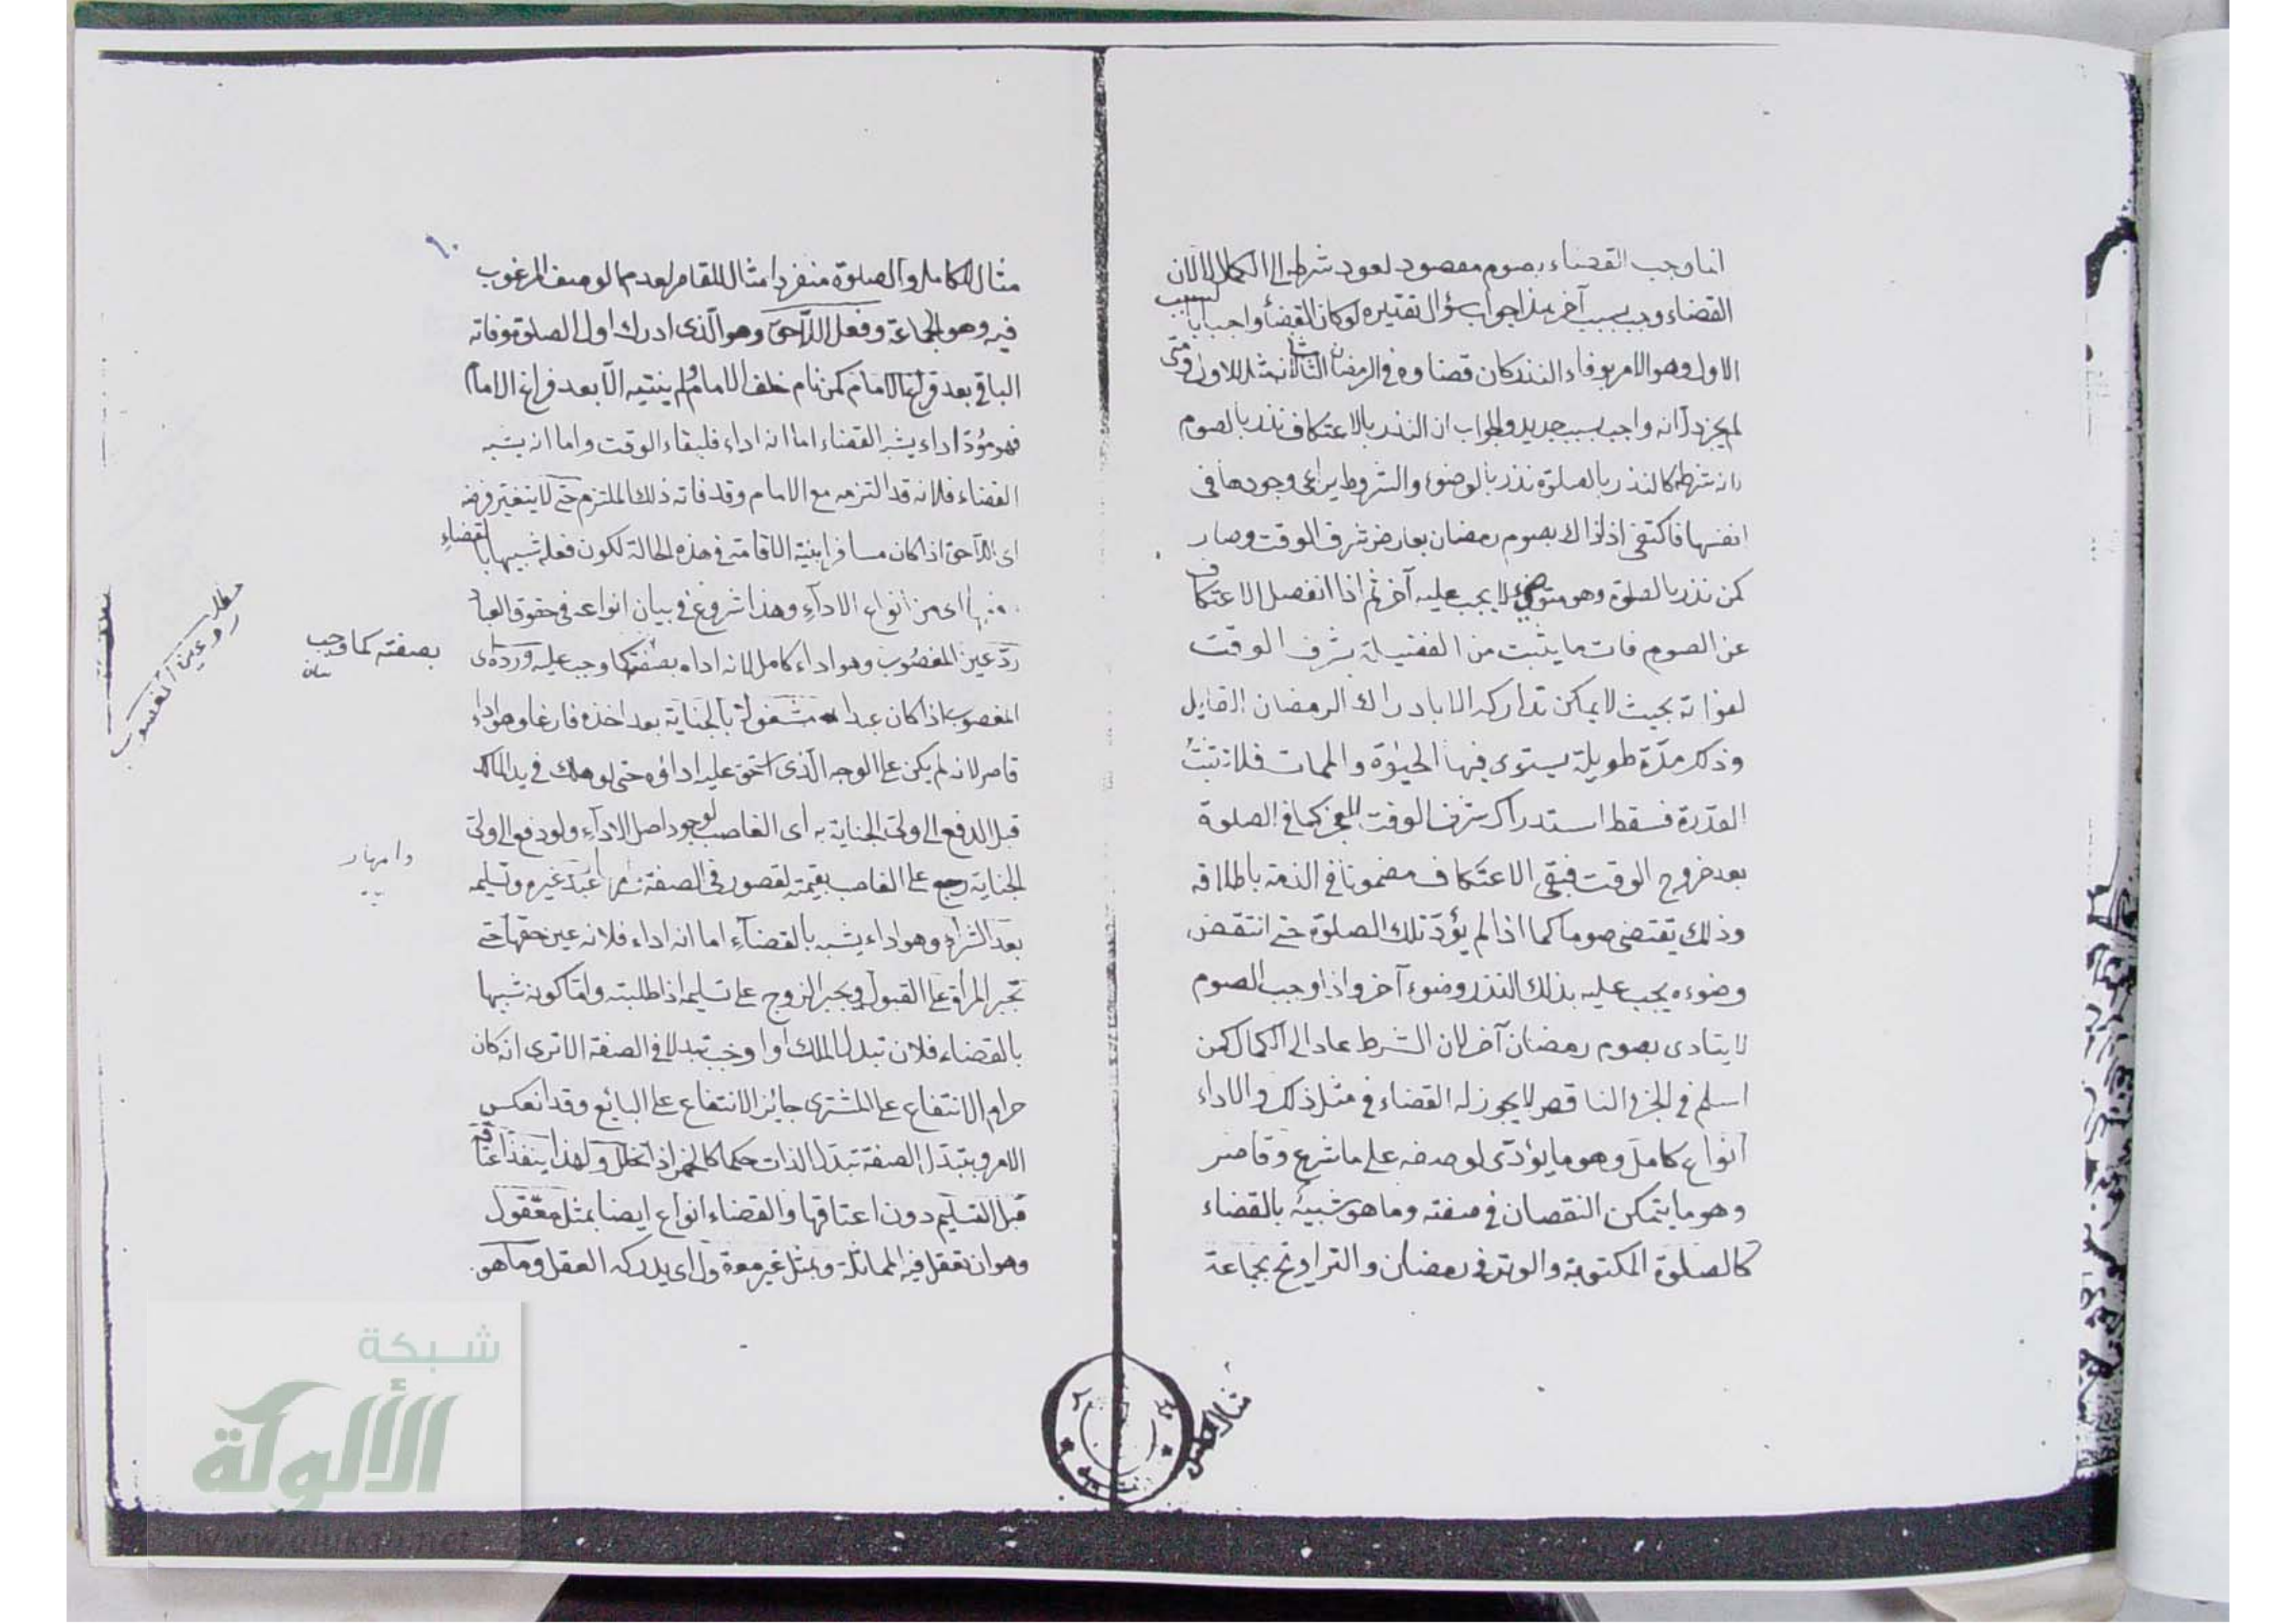 انما وجب القضاء بصوم مقصود لعود شرطه الى الكمال لا لان
القضاء وجب بسبب آخر هذا جواب سؤال تقديره لو كان القضاء واجبا بالسبب
الاول وهو الامر بوفاء النذر كان قضاؤه في الرمضان الثاني مثل الاول ومتى
لم يجز دل انه واجب بسبب جديد والجواب ان النذر بالاعتكاف نذر بالصوم
لانه شرطه كالنذر بالصلوة نذر بالوضوء والشروط يراعى وجودها في
انفسها فاكتفى اذ ذاك بصوم رمضان بعارض شرف الوقت وصار
كمن نذر بالصلوة وهو متوضئ لا يجب عليه آخر ثم اذا انفصل الاعتكاف
عن الصوم فات ما يثبت من الفضيلة بشرف الوقت
لفواته بحيث لا يمكن تداركه الا بادراك الرمضان القابل
وذلك مدّة طويلة يستوى فيها الحيوة والممات فلا تثبت
القدرة فسقط استدراك شرف الوقت للعجز كما في الصلوة
بعد خروج الوقت فبقى الاعتكاف مضمونا في الذمة باطلاقه
وذلك يقتضى صوما كما اذا لم يؤدّ تلك الصلوة حتى انتقض
وضوءه يجب عليه بذلك النذر وضوء آخر واذا وجب الصوم
لا يتادى بصوم رمضان آخر لان الشرط عاد الى الكمال كمن
اسلم في الجزء الناقص لا يجوز له القضاء في مثل ذلك والاداء
انواع كامل وهو ما يؤدّى بوصفه على ما شرع وقاصر
وهو ما يتمكن النقصان في صفته وما هو شبيه بالقضاء
كالصلوة المكتوبة والوتر في رمضان والتراويح بجماعة
مثال للكامل
٩٠
مثال للكامل والصلوة منفردا مثال للقاصر لعدم الوصف المرغوب
فيه وهو الجماعة وفعل اللاحق وهو الذى ادرك اول الصلوة وفاته
الباقى بعد فراغ الامام كمن نام خلف الامام ولم ينتبه الا بعد فراغ الامام
فهو مؤدّ اداء يشبه القضاء اما انه اداء فلبقاء الوقت واما انه يشبه
القضاء فلانه قد التزمه مع الامام وقد فاته ذلك الملتزم حتى لا يتغير فرضه
اى اللاحق اذا كان مسافرا بنية الاقامة في هذه الحالة لكون فعله شبيها بالقضاء
ومنها اى من انواع الاداء وهذا شروع في بيان انواعه في حقوق العباد
ردّ عين المغصوب وهو اداء كامل لانه اداه بصفته كما وجب عليه وردّه اى
المغصوب اذا كان عبدا مشغولا بالجناية بعد اخذه فارغا وهو اداء
قاصر لانه لم يكن على الوجه الذى استحق عليه اداؤه حتى لو هلك في يد المالك
قبل الدفع الى ولىّ الجناية برئ الغاصب لوجود اصل الاداء ولو دفع الى ولىّ
الجناية رجع على الغاصب بقيمته لقصور في الصفة عبد غيره وتسليمه
بعد الشراء وهو اداء يشبه بالقضاء اما انه اداء فلانه عين حقها حتى
تجبر المرأة على القبول ويجبر الزوج على تسليمه اذا طلبته واما كونه شبيها
بالقضاء فلان تبدل الملك اوجب تبدلا في الصفة الا ترى انه كان
حرام الانتفاع على المشترى جايز الانتفاع على البائع وقد انعكس
الامر وبتبدل الصفة تبدل الذات حكما كالخمر اذا تخلل ولهذا ينفذ اعتاقه
قبل التسليم دون اعتاقها والقضاء انواع ايضا بمثل معقول
وهو ان تعقل فيه المماثلة وبمثل غير معقول اى يدركه العقل وما هو
بصفته كما وجب
بيان
رد عين المغصوب
وامهار
شبكة
الألوكة
www.alukah.net